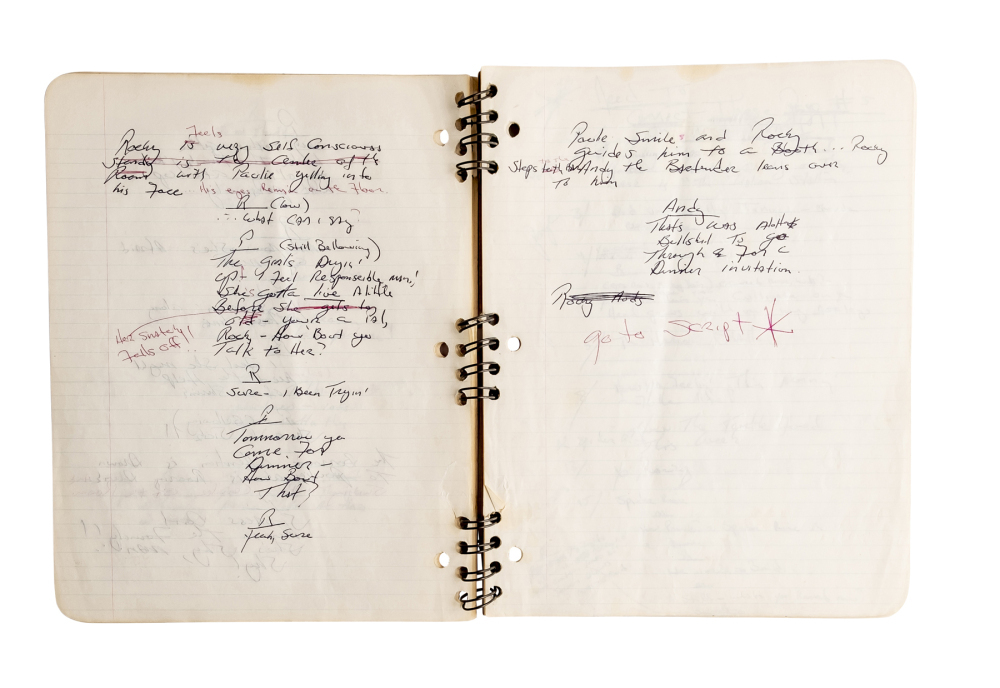 Feels
Rocky is very Self Conscious
Standing is The Center of the
Room with Paulie yelling into
his Face... His eyes Remain on the Floor.
R (low)
... What can i say?
P (Still Bellowing)
The goals Dryin'
up - I Feel Responsible man!
She's Gotta live Alittle
Before She gets to
old - you're a pal,
Rocky - How 'Bout ya
Talk to Her?
Her Snatch
Falls off
R
Sure - I Been Tryin'
P
Tommorrow ya
Come For
Dinner -
How Bout
That?
R
Yeah, Sure
Paulie Smiles and Rocky
Guides him to a Booth... Rocky
Steps Andy the Bartender leans over
To him
Andy
Thats was Alotta
Bullshit To go
Through For a
Dinner invitation.
Rocky Andy
go to Script